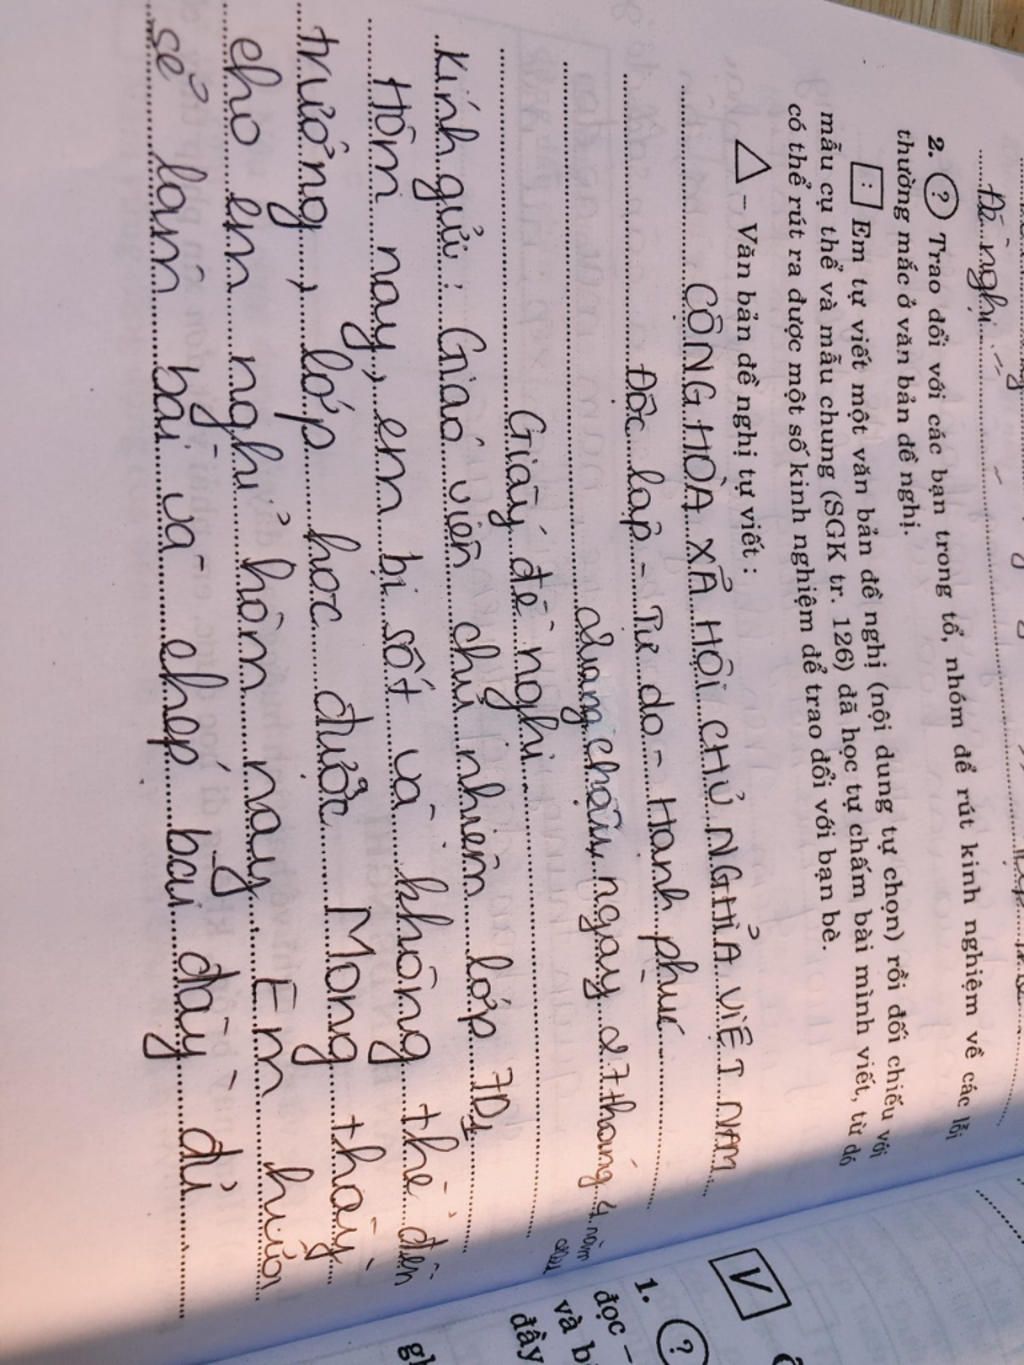 Đề nghị
2. (?) Trao đổi với các bạn trong tổ, nhóm để rút kinh nghiệm về các lỗi
thường mắc ở văn bản đề nghị.
: Em tự viết một văn bản đề nghị (nội dung tự chọn) rồi đối chiếu với
mẫu cụ thể và mẫu chung (SGK tr. 126) đã học tự chấm bài mình viết, từ đó
có thể rút ra được một số kinh nghiệm để trao đổi với bạn bè.
– Văn bản đề nghị tự viết :
CỘNG HÒA XẢ HỘI CHỦ NGHỈA VIỆT NAM
Độc lập - Tự do - Hạnh phúc
Quang châu, ngày 27 tháng 4 năm
Giấy đề nghị
Kính gửi : Giáo viên chủ nhiệm lớp 7D1
Hôm nay, em bị sốt và không thể đến
trường, lớp học được Mong thầy
cho em nghỉ hôm nay. Em hứa
sẻ làm bài và chép bài đầy đủ
V
1. (?)
đọc –
đầy